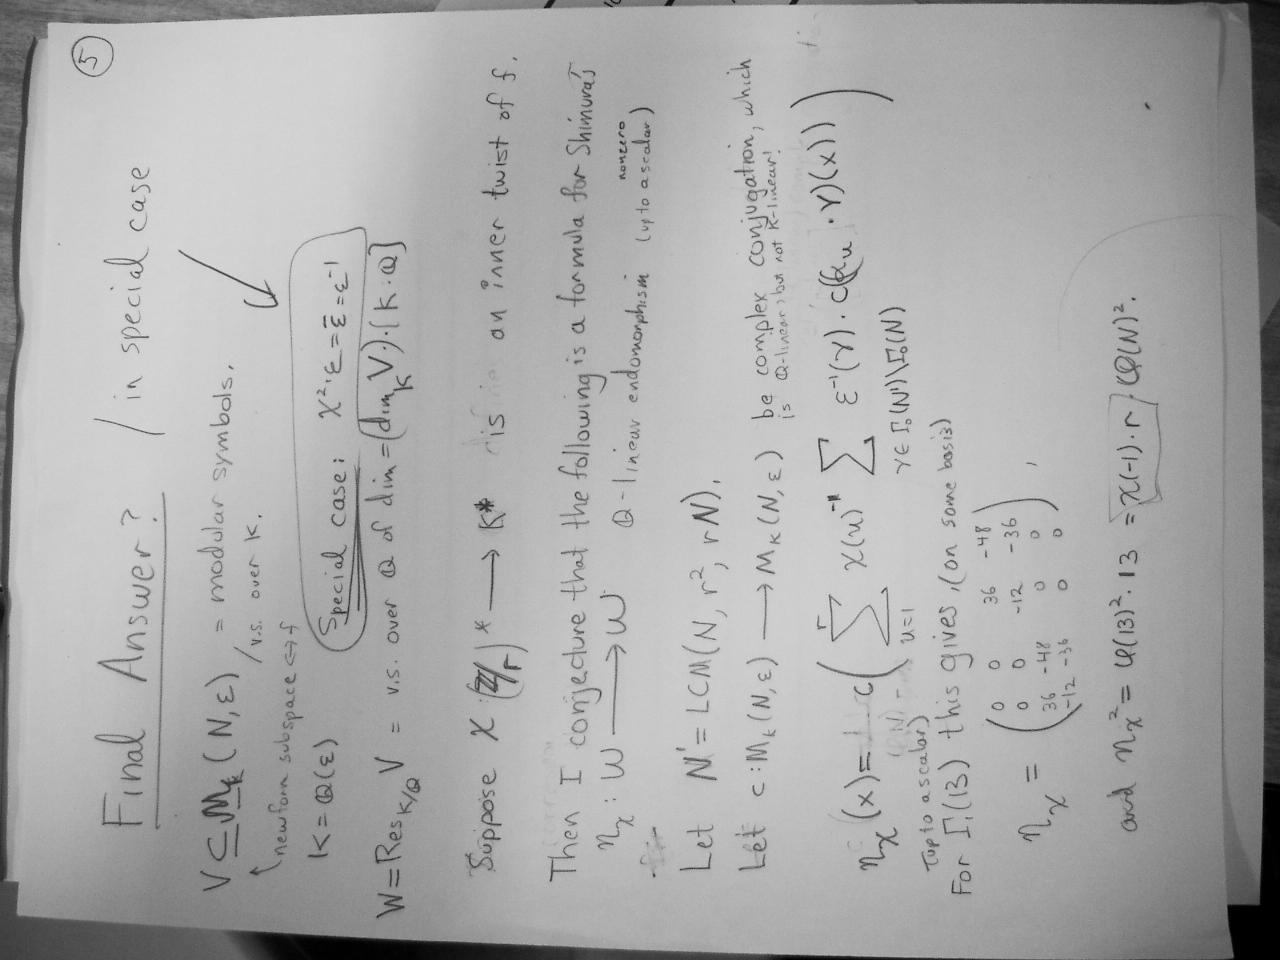 5
Final Answer? / in special case
V ⊆ M_k(N, ε) = modular symbols.
v.s. over K.
newform subspace ↔ f
K = Q(ε)
Special case: χ²·ε = ε̄ = ε⁻¹
W = Res_{K/Q} V = v.s. over Q of dim = (dim_K V)·[K:Q]
Suppose χ : (Z/r)* → K* is an inner twist of f.
Then I conjecture that the following is a formula for Shimura's
n_χ : W → W Q-linear endomorphism (up to a nonzero scalar)
Let N' = LCM(N, r², rN).
Let c : M_k(N, ε) → M_k(N, ε) be complex conjugation, which
is Q-linear, but not K-linear!
n_χ(x) = ( Σ_{u=1}^{r} χ(u)⁻ Σ_{γ∈Γ₀(N')\Γ₀(N)} ε⁻¹(γ) · c(α_u · γ)(x)) )
(up to a scalar)
For Γ₁(13) this gives, (on some basis)
n_χ = ( 0 0 36 -48
0 0 -12 -36
36 -48 0 0
-12 -36 0 0 ) ,
and n_χ² = φ(13)²·13 = χ(-1)·r·φ(N)².